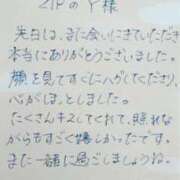 ZIPの Y様
先日は、また会いにきていただき
本当にありがとうございました。
顔を見てすぐにハグしてくださり、
心がほっとしました。
たくさんキスしてくれて、照れな
がらもすごく嬉しかったです。
また一緒に過ごしましょうね。